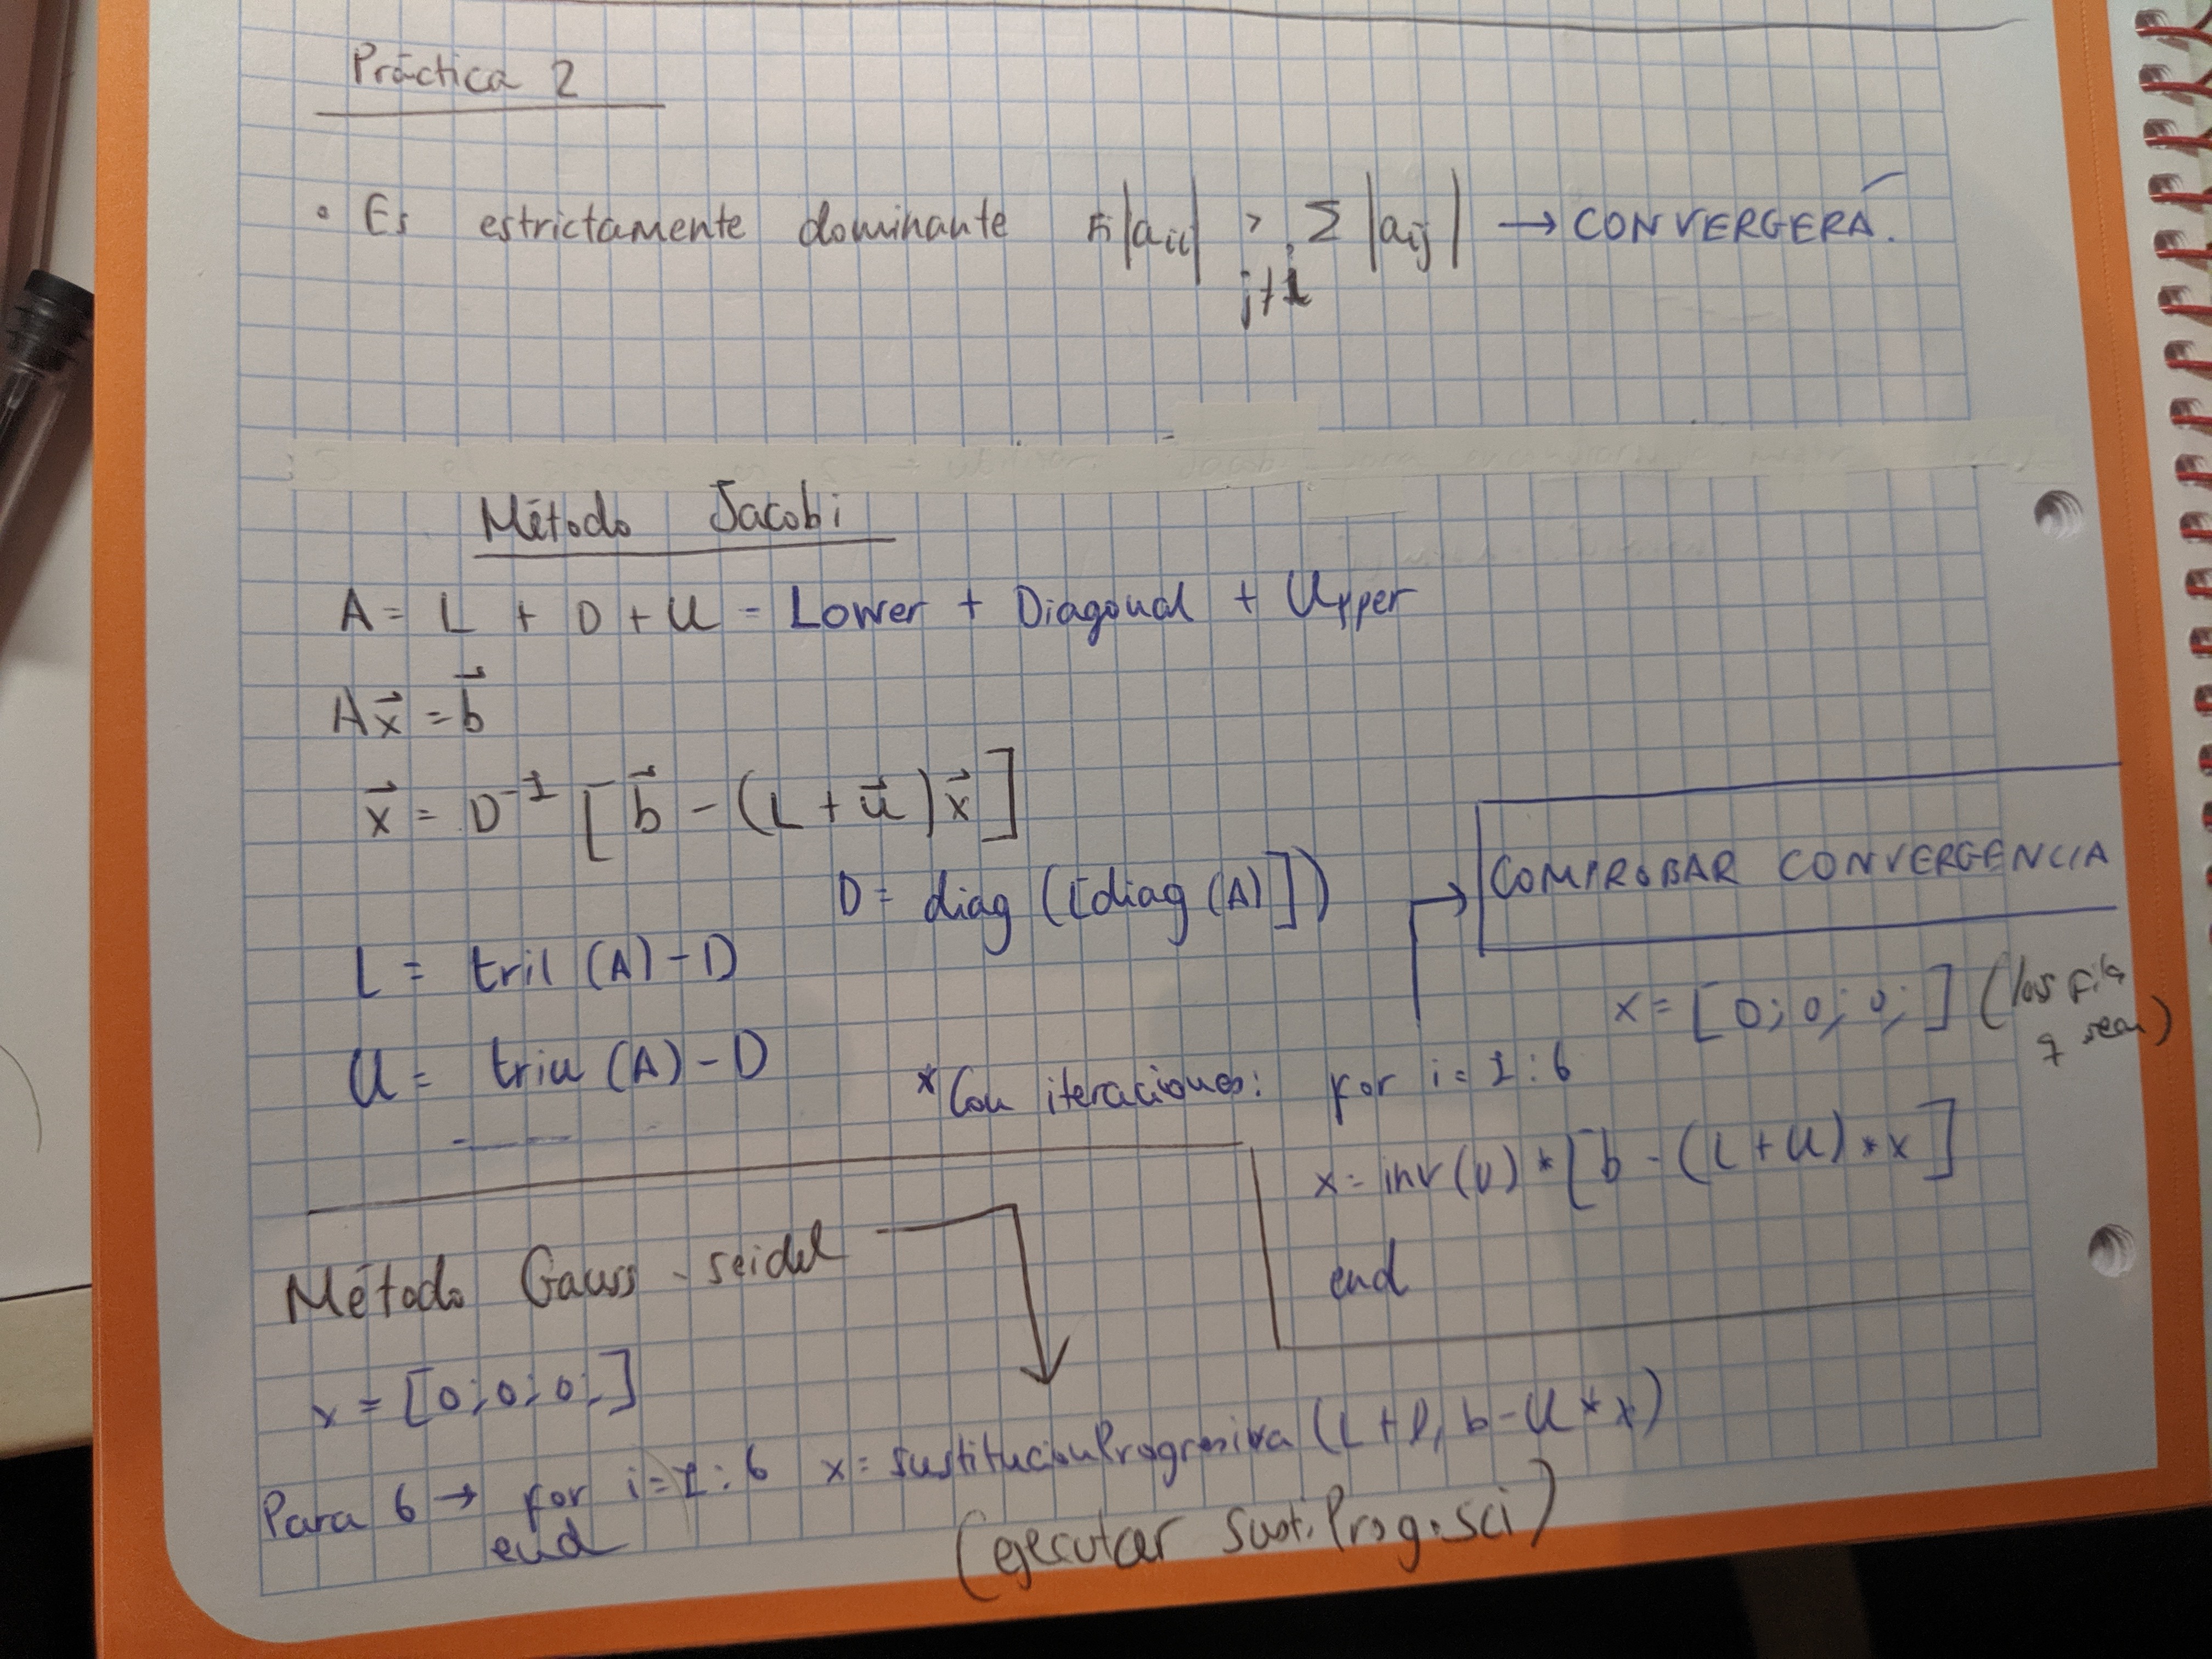 Práctica 2
• Es estrictamente dominante |aii| > Σ |aij| → CONVERGERÁ.
j≠i
Método Jacobi
A = L + D + U = Lower + Diagonal + Upper
Ax⃗ = b⃗
x⃗ = D⁻¹ [b⃗ - (L + u⃗)x⃗]
D = diag ([diag (A)])
COMPROBAR CONVERGENCIA
L = tril (A) - D
x = [0; 0; 0;] (las fils q sean)
U = triu (A) - D
*Con iteraciones: for i = 1 : 6
x = inv(D) * [b - (L+U) * x]
end
Método Gauss - seidel
x = [0; 0; 0;]
Para 6 → for i=1:6 x = sustitucionProgresiva (L+D, b-U*x)
end
(ejecutar Sust.Prog.sci)